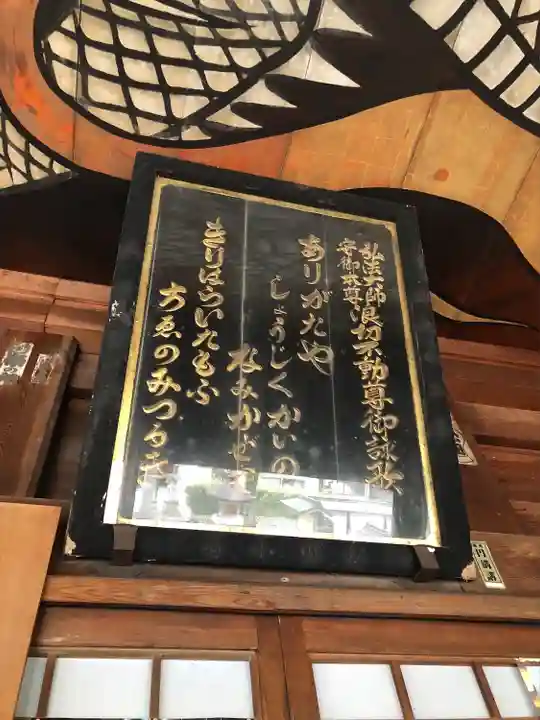 弘法大師浪切不動尊御詠歌
安御本尊
ありがたや
しょうじくかいの
なみかぜを
きりはらいたもふ
ちゑのみつるぎ